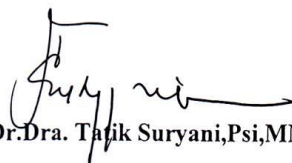 Dr.Dra. Tatik Suryani,Psi,MM